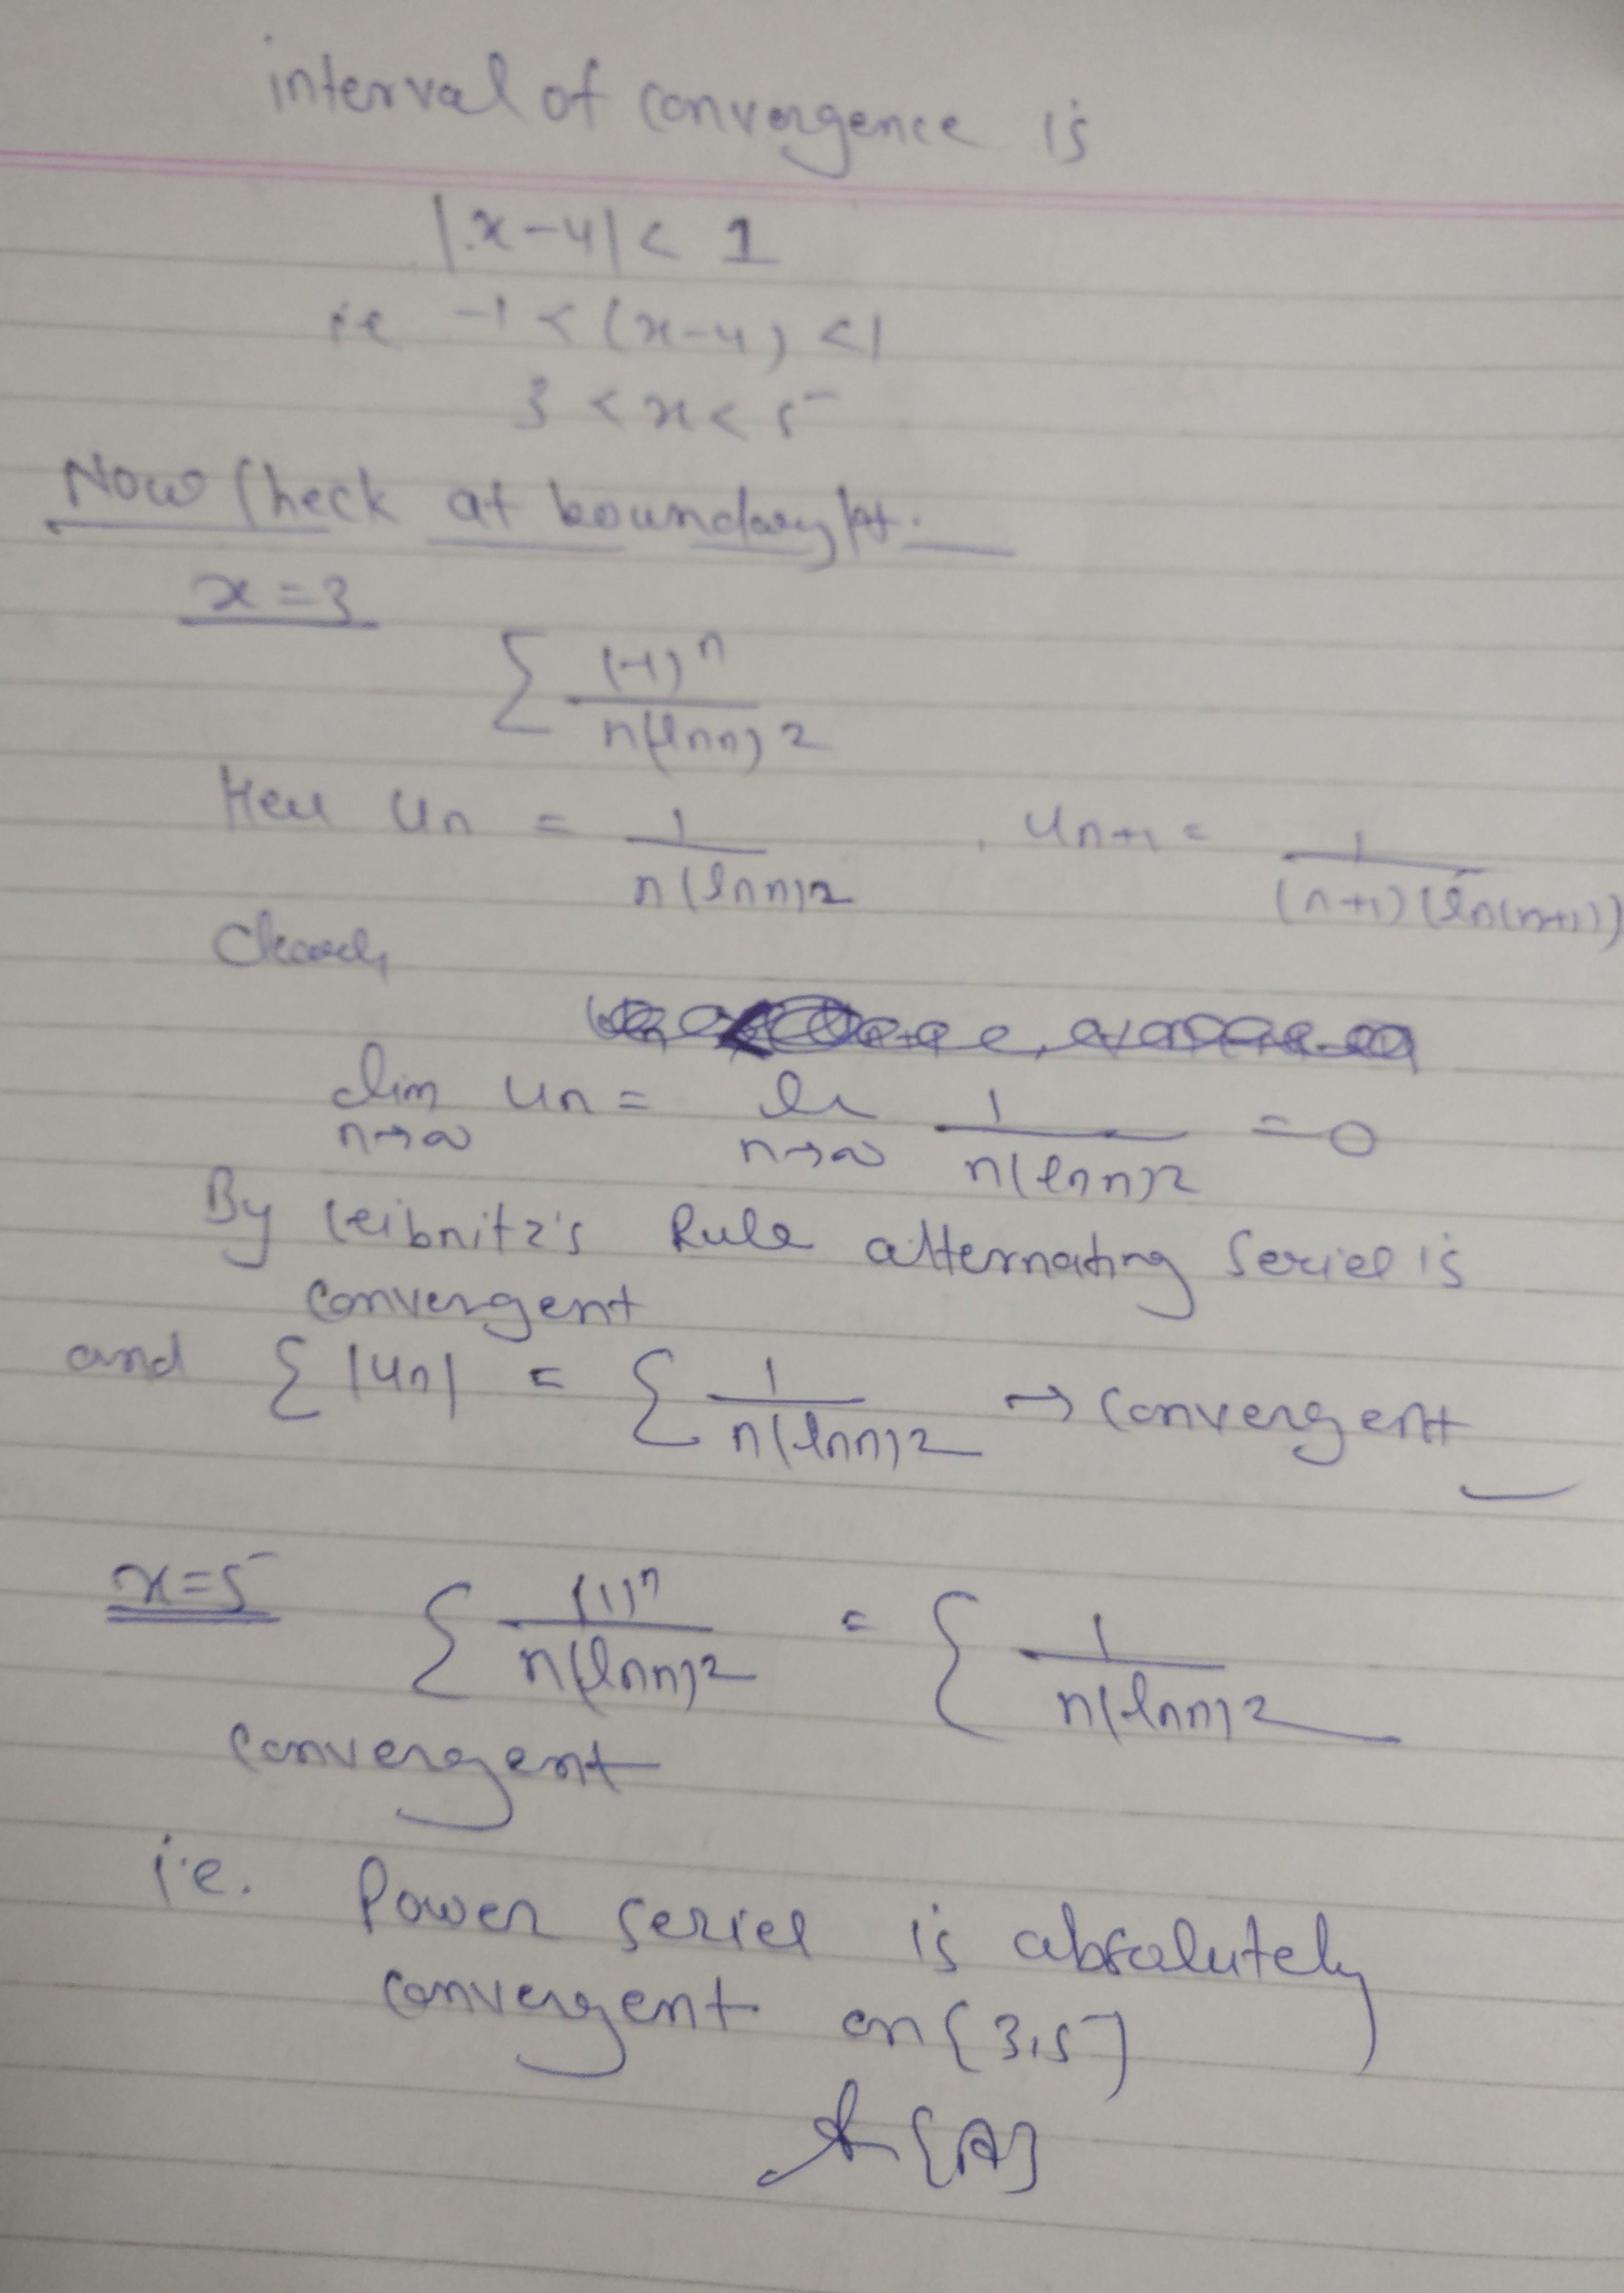 interval of convergence is
|x-4| < 1
ie -1 < (x-4) < 1
3 < x < 5
Now Check at boundary pt.
x = 3
Σ (-1)ⁿ / n(ln n)²
Here Un = 1 / n(ln n)² , Un+1 = 1 / (n+1)(ln(n+1))
Clearly
lim n→∞ Un = li n→∞ 1 / n(ln n)² = 0
By Leibnitz's Rule alternating Series is
Convergent
and Σ |Un| = Σ 1 / n(ln n)² → Convergent
x = 5 Σ (1)ⁿ / n(ln n)² = Σ 1 / n(ln n)²
Convergent
i.e. Power series is absolutely
convergent on [3,5]
{A}